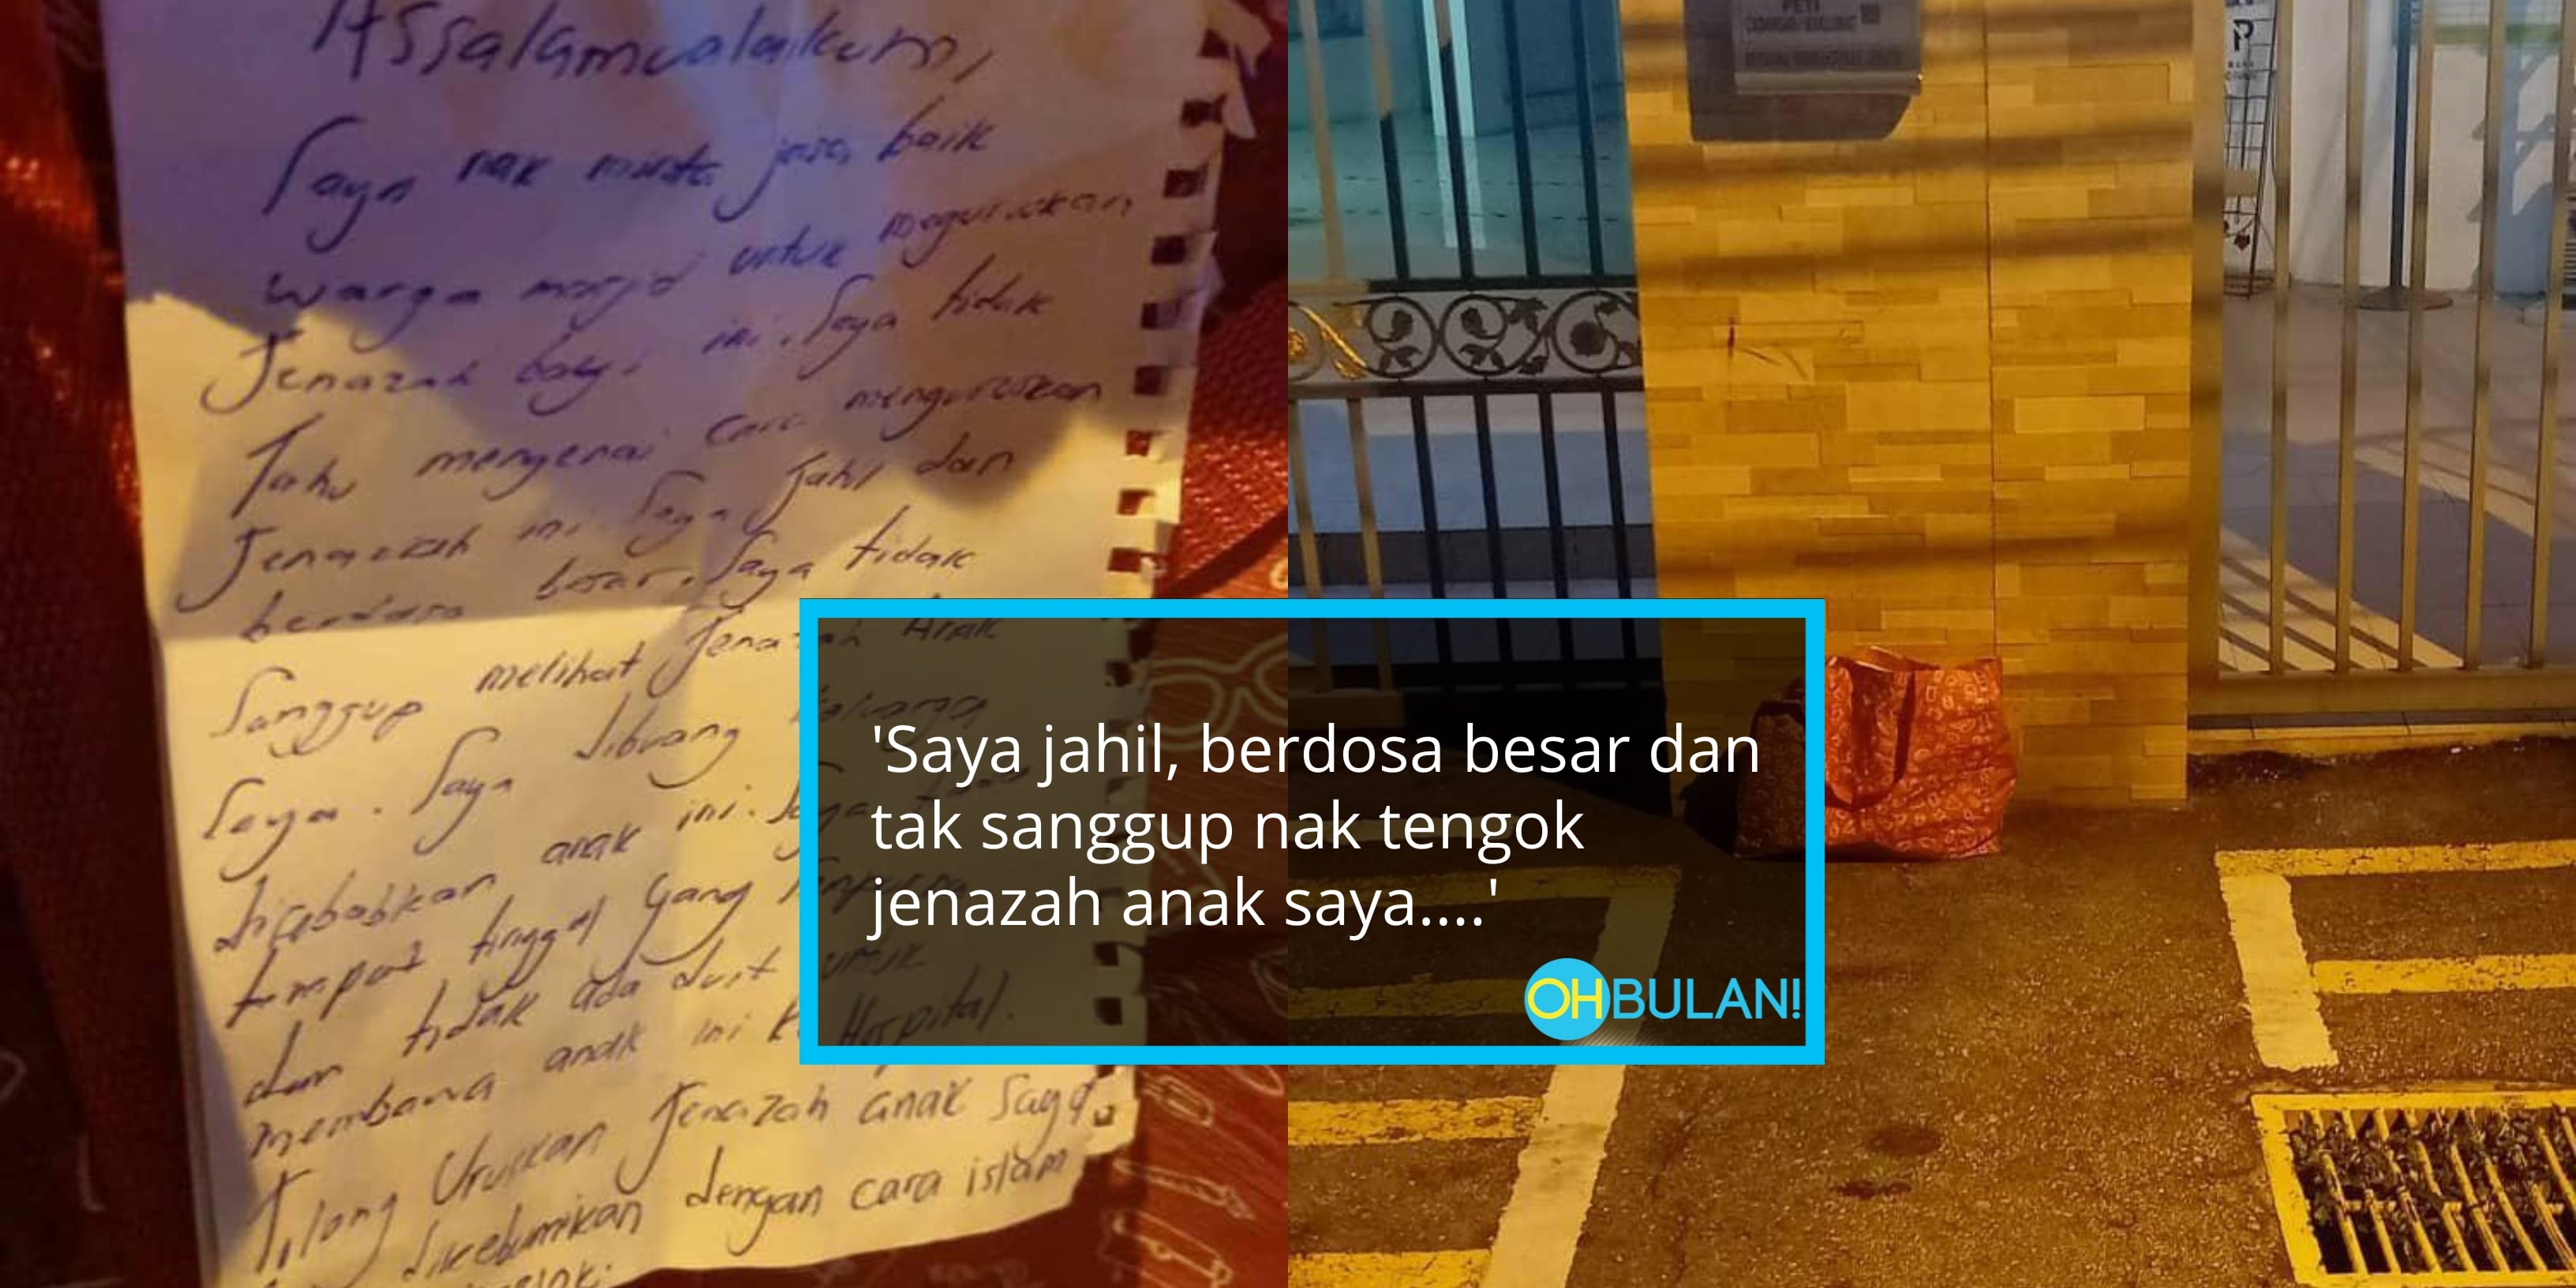 Assalamualaikum,
Saya nak minta jasa baik
warga masjid untuk menguruskan
Jenazah bayi ini. Saya tidak
Tahu mengenai cara menguruskan
Jenazah ini. Saya Jahil dan
berdosa besar. Saya tidak
Sanggup melihat Jenazah Anak
Saya. Saya dibuang keluarga
disebabkan anak ini. Saya
tempat tinggal yang
dan tidak ada duit untuk
membawa anak ini ke Hospital.
Tolong Uruskan Jenazah anak saya
dikebumikan dengan cara islam
PETI
'Saya jahil, berdosa besar dan
tak sanggup nak tengok
jenazah anak saya....'
OHBULAN!